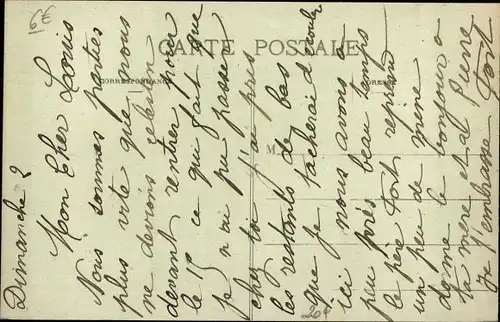 6€
CARTE POSTALE
CORRESPONDANCE
ADRESSE
M
Dimanche 2
Mon Cher Louis
Nous sommes parties
plus vite que nous
ne devions
devant rentrer pour
le 15 ce qui fait que
je n'ai pu passer
chez toi j'ai pris
les restants de bas
que je tacherai de
ici nous avons a
peu près beau temps
le père Fort reprend
un peu de mine
donne le bonjour a
ta mere et a Pierre
je t'embrasse Fort